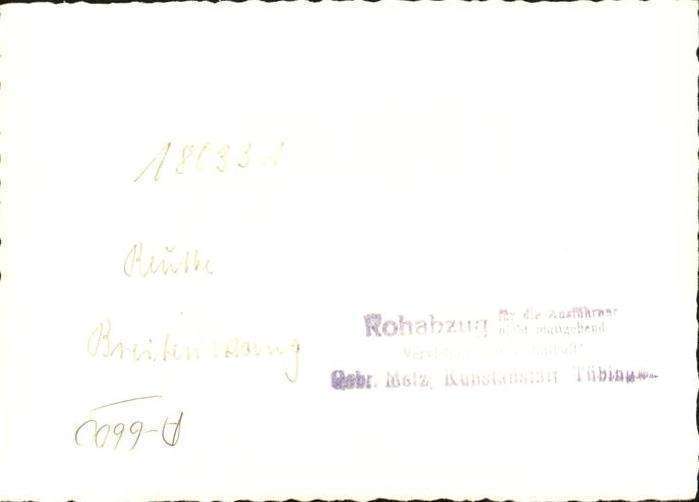 18033
Reutte
Breitenwang
A-6600
Rohabzug für die Ausführung
nicht maßgebend
Gebr. Metz, Kunstanstalt Tübingen